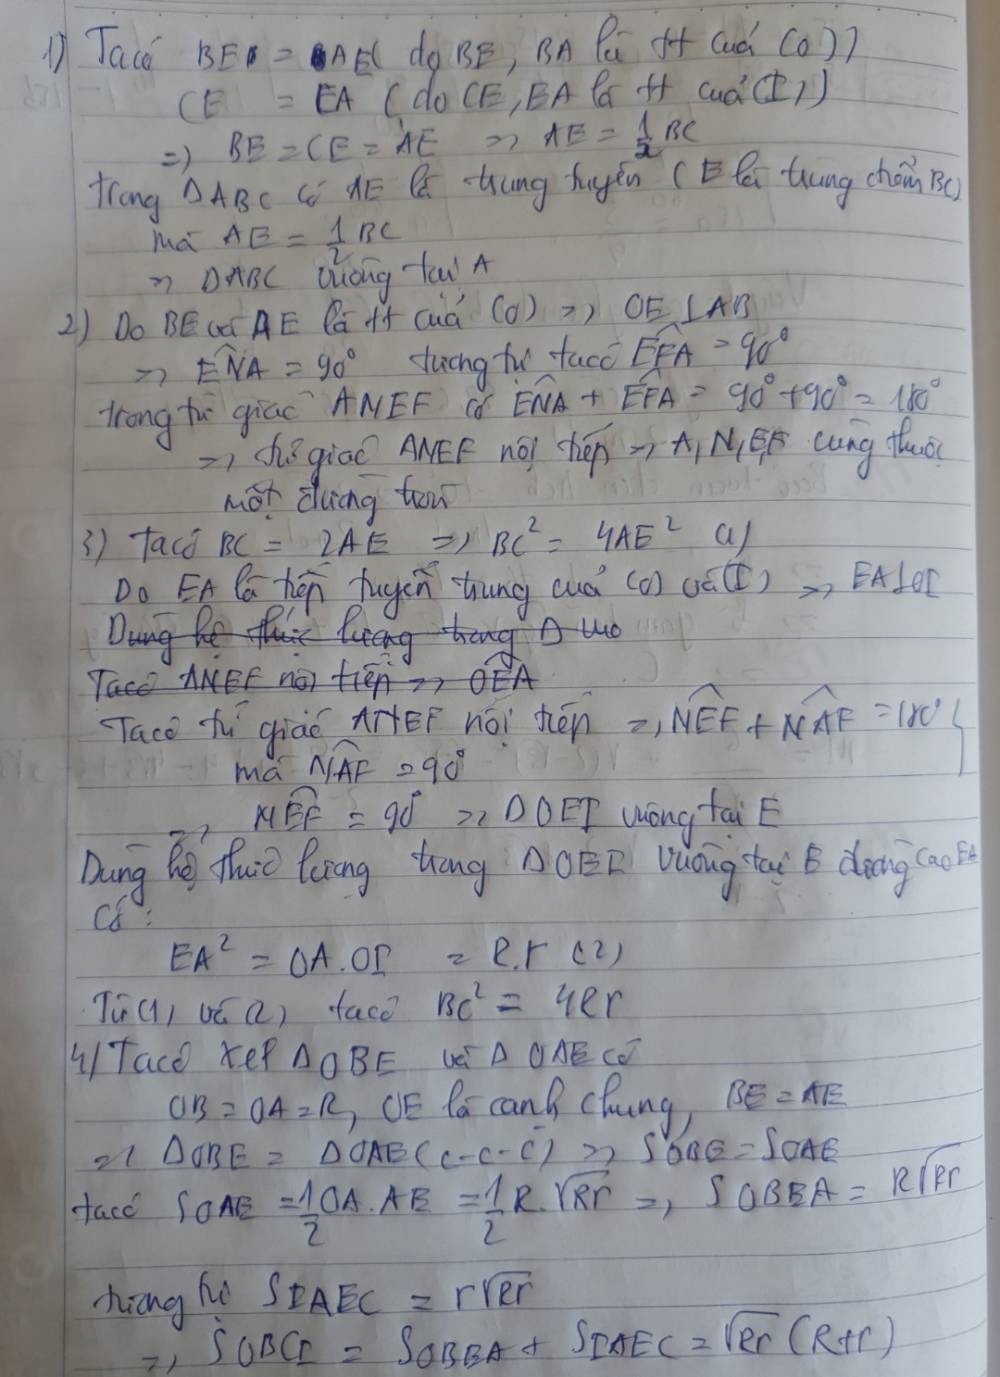 1) Ta có BE = AE ( do BE, BA là tt cuả (O))
CE = EA ( do CE, EA là tt cuả (I))
=> BE = CE = AE => AE = 1/2 BC
trong ΔABC có AE là trung tuyến ( E là trung điểm BC)
mà AE = 1/2 BC
=> ΔABC vuông tại A
2) Do BE và AE là tt cuả (O) => OE ⊥ AB
=> ENA = 90° tương tự ta có EFA = 90°
trong tứ giác ANEF có ENA + EFA = 90° + 90° = 180°
=> tứ giác ANEF nội tiếp => A, N, E, F cùng thuộc
một đường tròn
3) Ta có BC = 2AE => BC² = 4AE² (1)
Do EA là tiếp tuyến trung cuả (O) và (I) => EA ⊥ OI
Dung hệ thức lượng trong Δ vuo
Ta có ANEF nội tiếp => OEA
Ta có tứ giác ANEF nội tiếp => NEF + NAF = 180° }
mà NAF = 90°
=> NEF = 90° => ΔOEI vuông tại E
Dung hệ thức lượng trong ΔOEI vuông tại E đường cao EA
Có :
EA² = OA.OI = R.r (2)
Từ (1) và (2) ta có BC² = 4Rr
4) Ta có xét ΔOBE và ΔOAE có
OB = OA = R, OE là cạnh chung, BE = AE
=> ΔOBE = ΔOAE (c-c-c) => SOBE = SOAE
ta có SOAE = 1/2 OA.AE = 1/2 R.√Rr => SOBEA = R√Rr
tương tự SIAEC = r√Rr
=> SOBCI = SOBEA + SIAEC = √Rr (R+r)